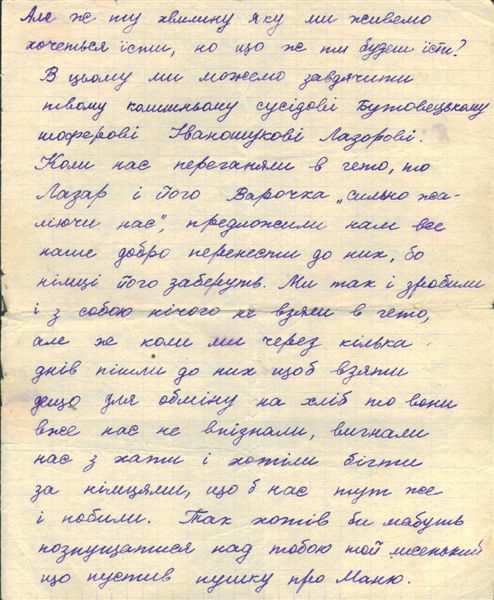 Але ж ту хвилину яку ми живемо
хочеться їсти, но що ж ти будеш їсти?
В цьому ми можемо завдячити
твому колишньому сусідові Бутовецькому
шоферові Іванощукові Лазорові.
Коли нас переганяли в гето, то
Лазар і його Варочка „сильно жа-
ліючи нас", предложили нам все
наше добро перенести до них, бо
німці його заберуть. Ми так і зробили
і з собою нічого не взяли в гето,
але же коли ми через кілька
днів пішли до них щоб взяти
дещо для обміну на хліб то вони
вже нас не впізнали, вигнали
нас з хати і хотіли бігти
за німцями, що б нас тут же
і побили. Так хотів би мабуть
познущатися над тобою той лисенький
що пустив пушку про Маню.